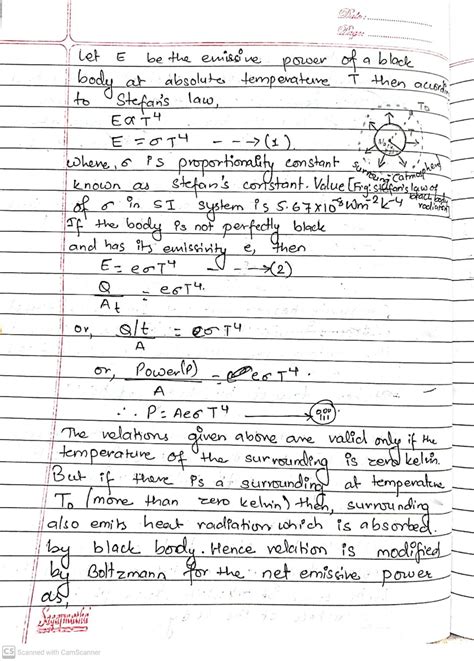 Date:
Page:
Let E be the emissive power of a black
body at absolute temperature T then accordin
to Stefan's law,
E α T⁴
E = σT⁴ - - -→(1).
where, σ is proportionality constant
known as stefan's constant. Value
of σ in SI system is 5.67x10⁻⁸Wm⁻²K⁻⁴
T₀
Surrounding (atmosphere)
[Fig: stefan's law of
black body
radiation
If the body is not perfectly black
and has its emissivity e, then
E = eσT⁴ - - -→(2)
Q/At = eσT⁴.
or, Q/t / A = eσT⁴
or, Power(P) / A = eσT⁴.
∴ P = AeσT⁴ → (iii).
The relations given above are valid only if the
temperature of the surrounding is zero kelvin.
But if there is a surrounding at temperature
T₀ (more than zero kelvin) then, surrounding
also emits heat radiation which is absorbed
by black body. Hence relation is modified
by Boltzmann for the net emissive power
as,
CS Scanned with CamScanner